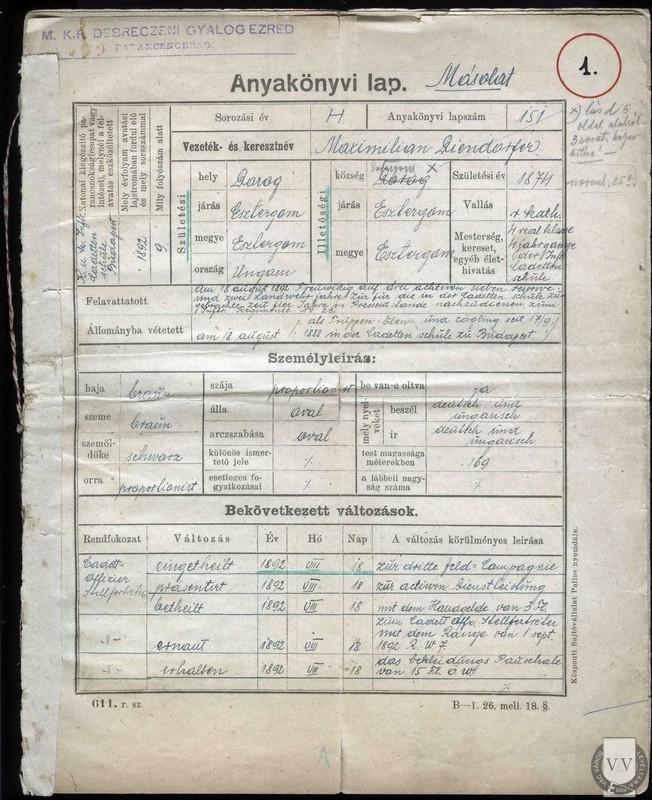 M. KIR. DEBRECZENI GYALOG EZRED
PARANCSNOKSÁG.
1.
Anyakönyvi lap. Másolat
Sorozási év H Anyakönyvi lapszám 151
x) lásd 6
oldel alulról
3 sorát
Vezeték- és keresztnév Maximilian Diendorfer
Katonai kiegészítő pa-
rancsnokság(csapat vagy
intézet), melynél a fel-
avatás eszközöltetett
K. u. k. Inft.
Cadetten
schule
Budapest
Mely évfolyam avatási
lajstromában fordul elő
és mely sorszámmal
1892
Mily folyószám alatt
9.
Születési
hely Dorog
járás Esztergom
megye Esztergom
ország Ungarn
Illetőségi
község Esztergom x
Dorog
járás Esztergom
megye Esztergom
Születési év 1874
Vallás r. kath.
Mesterség,
kereset,
egyéb élet-
hivatás
4 real klasse
4 jahrgänge
der Inft.
Cadetten
schule
Felavattatott
Am 18 august 1892 Freiwillig auf drei activen sieben reserve
und zwei Landwehr jahre, für die in der Cadetten schule zu-
Állományba vétetett
am 18 august
als Truppen-Eleve und zögling seit 17/9
1888 in der Cadetten schule zu Budapest
Személyleírás:
haja braun
szeme braun
szemöl-
döke schwarz
orra proportionirt
szája proportionirt
álla oval
arczszabása oval
különös ismer-
tető jele ./.
esetleges fo-
gyatkozásai ./.
be van-e oltva ja
mely nyel-
veket
beszél deutsch und
ungarisch
ír deutsch und
ungarisch
test magassága
méterekben 169
a lábbeli nagy-
ság száma ./.
Bekövetkezett változások.
Rendfokozat Változás Év Hó Nap A változás körülményes leírása
Cadett-
offizier
Stellvertreter
eingetheilt 1892 VIII 18 zur dritte Feld-Compagnie
präsentirt 1892 VIII 18 zur activen Dienstleistung
betheilt 1892 VIII 18 mit dem Handgelde von 3 Fl.
zum Cadett Off. Stellvertreter
mit dem Range von 1 sept.
-"- ernant 1892 VIII 18 1892 R. W 7.
-"- erhalten 1892 VIII 18 das bekleidungs Pauschale
von 15 Fl. Ö W.
./.
611. r. sz
B—1. 26. mell. 18. §.
Központi Sajtóvállalat Pallas nyomdája.
A
VÁC VÁROS LEVÉLTÁRA
VV